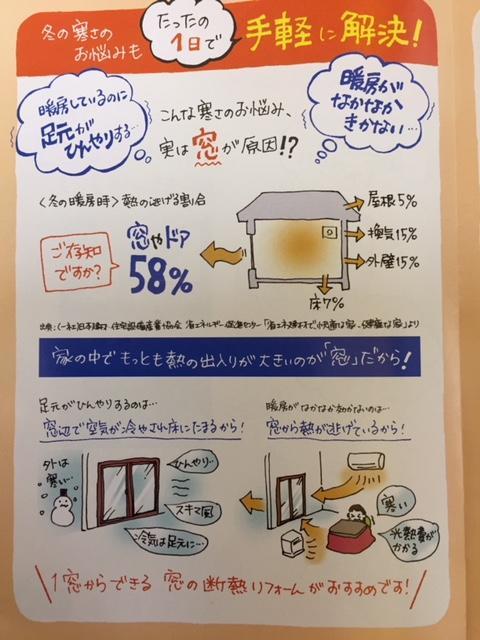 冬の寒さの
お悩みも
たったの
1日で
手軽に解決!
暖房しているのに
足元が
ひんやりする…
こんな寒さのお悩み、
実は窓が原因!?
暖房が
なかなか
きかない…
〈冬の暖房時〉熱の逃げる割合
ご存知
ですか?
窓やドア
58%
屋根5%
換気15%
外壁15%
床7%
出典:(一社)日本建材・住宅設備産業協会 省エネルギー建材普及促進センター「省エネ建材で、快適な家、健康な家」より
家の中でもっとも熱の出入りが大きいのが「窓」だから!
足元がひんやりするのは…
窓辺で空気が冷やされ床にたまるから!
外は
寒い…
ひんやり…
スキマ風
冷気は足元に…
暖房がなかなか効かないのは…
窓から熱が逃げているから!
寒い
光熱費が
かかる
1窓からできる 窓の断熱リフォームがおすすめです!